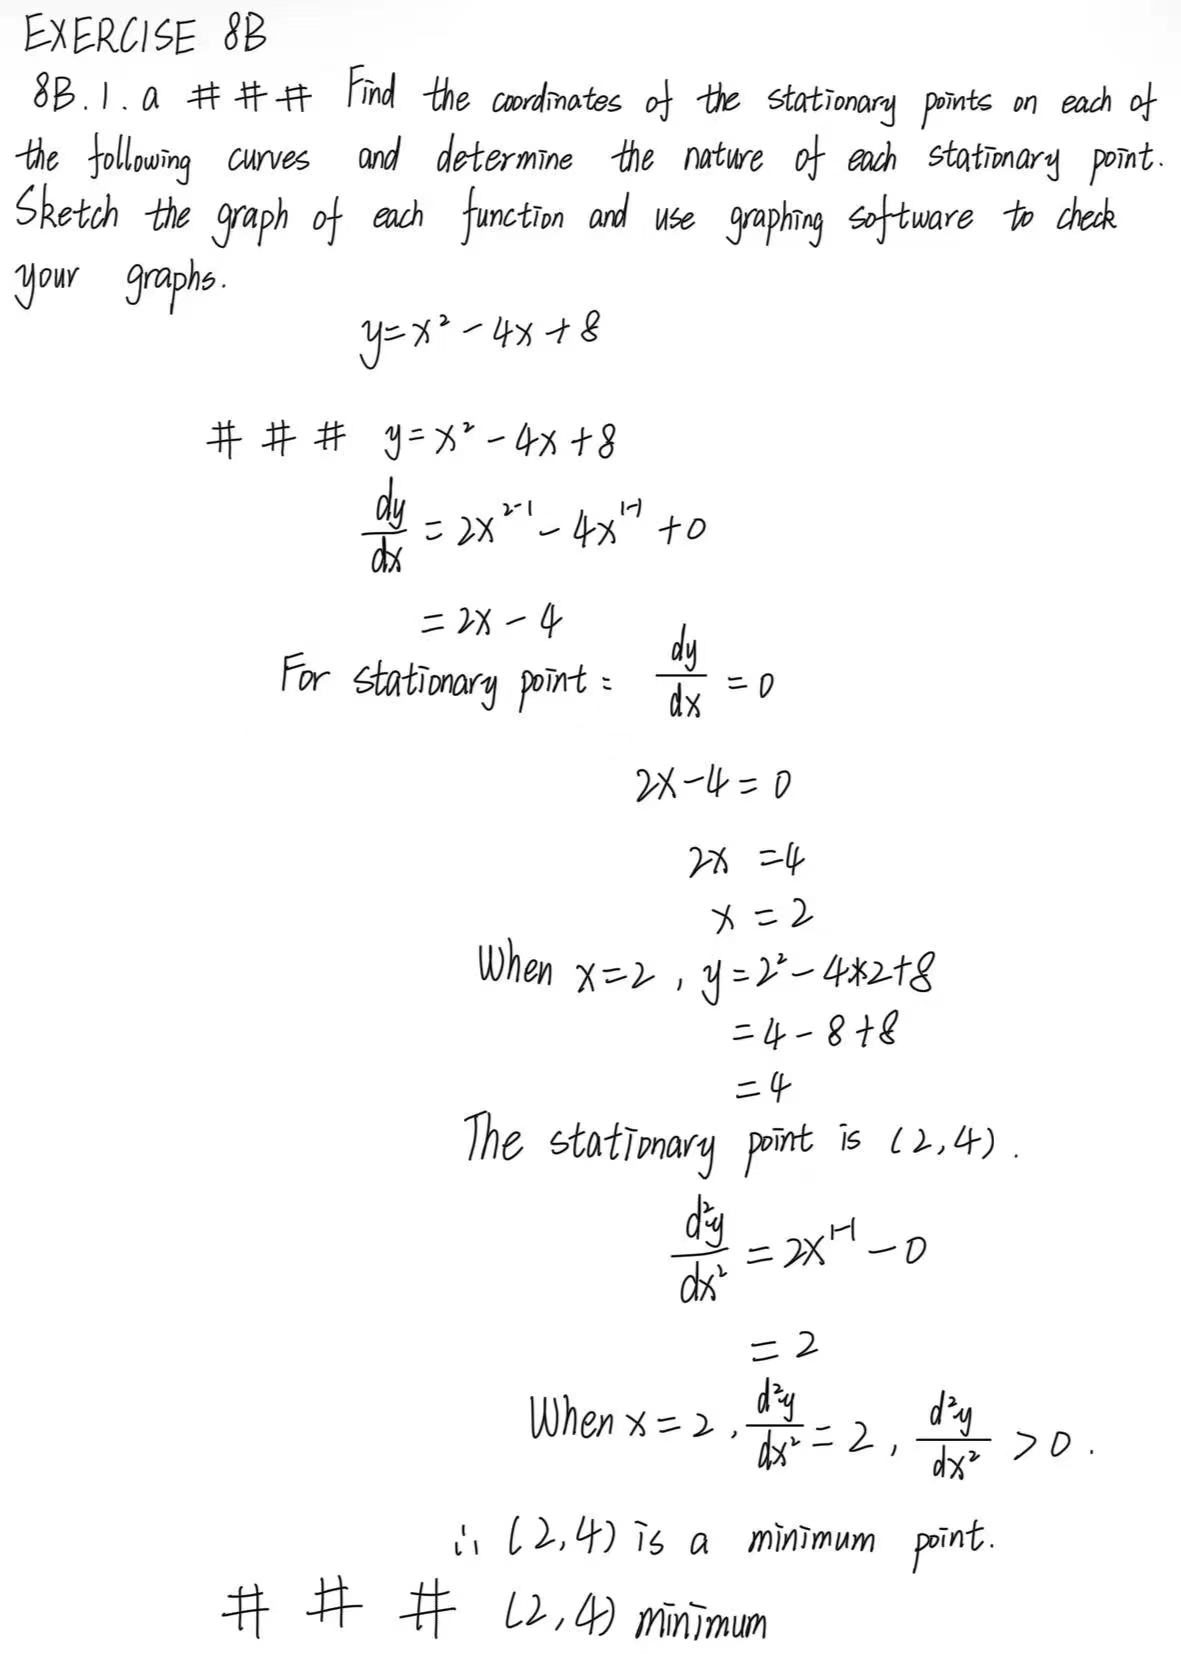 EXERCISE 8B
8B.1.a ### Find the coordinates of the stationary points on each of
the following curves and determine the nature of each stationary point.
Sketch the graph of each function and use graphing software to check
your graphs.
y=x²-4x+8
### y=x²-4x+8
dy/dx = 2x^(2-1) - 4x^(1-1) + 0
= 2x - 4
For stationary point: dy/dx = 0
2x-4=0
2x =4
x = 2
When x=2, y=2²-4*2+8
=4-8+8
=4
The stationary point is (2,4).
d²y/dx² = 2x^(1-1) - 0
= 2
When x=2, d²y/dx² = 2, d²y/dx² > 0.
∴ (2,4) is a minimum point.
### (2,4) minimum